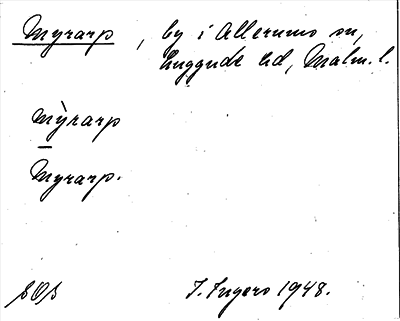 Myrarp, by i Allerums sn,
Luggude hd, Malm. l.
Mỳrarp
Myrarp.
SOS I. Ingers 1948.